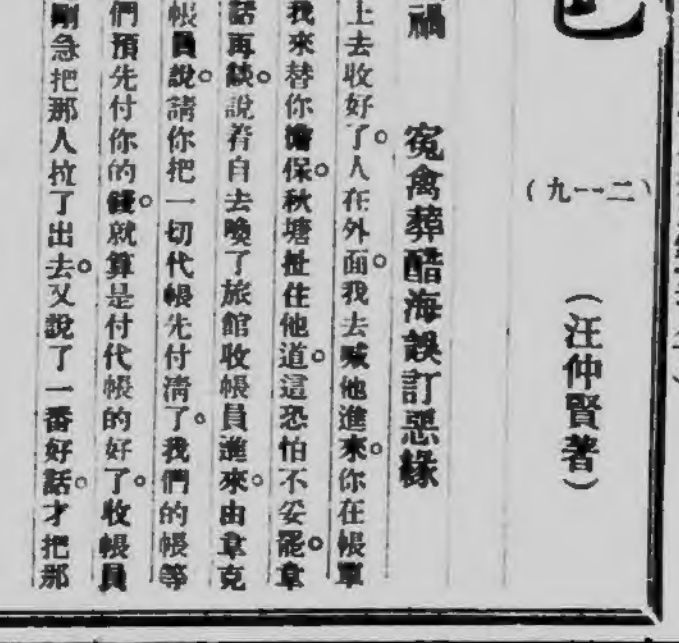 (二一九)
(汪仲賢著)
禍　寃禽葬醋海誤訂惡緣
上去收好了。人在外面。我去喊他進來。你在帳單
我來替你擔保。秋塘扯住他道。這恐怕不妥罷。韋
話再談。說着自去喚了旅館收帳員進來。由韋克
帳員說。請你把一切代帳先付淸了。我們的帳等
們預先付你的錢。就算是付代帳的好了。收帳員
剛急把那人拉了出去。又說了一番好話。才把那